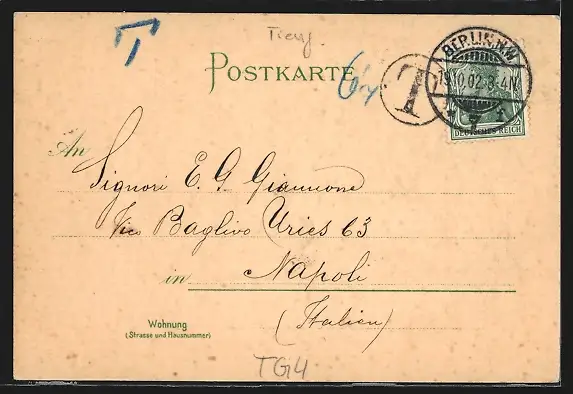 T
Tiery
POSTKARTE
T
BERLIN N.W.
DEUTSCHES REICH
An
Signori E. G. Giannone
Vico Baglivo Uries 63
in Napoli
(Italien)
Wohnung
(Strasse und Hausnummer)
TG4